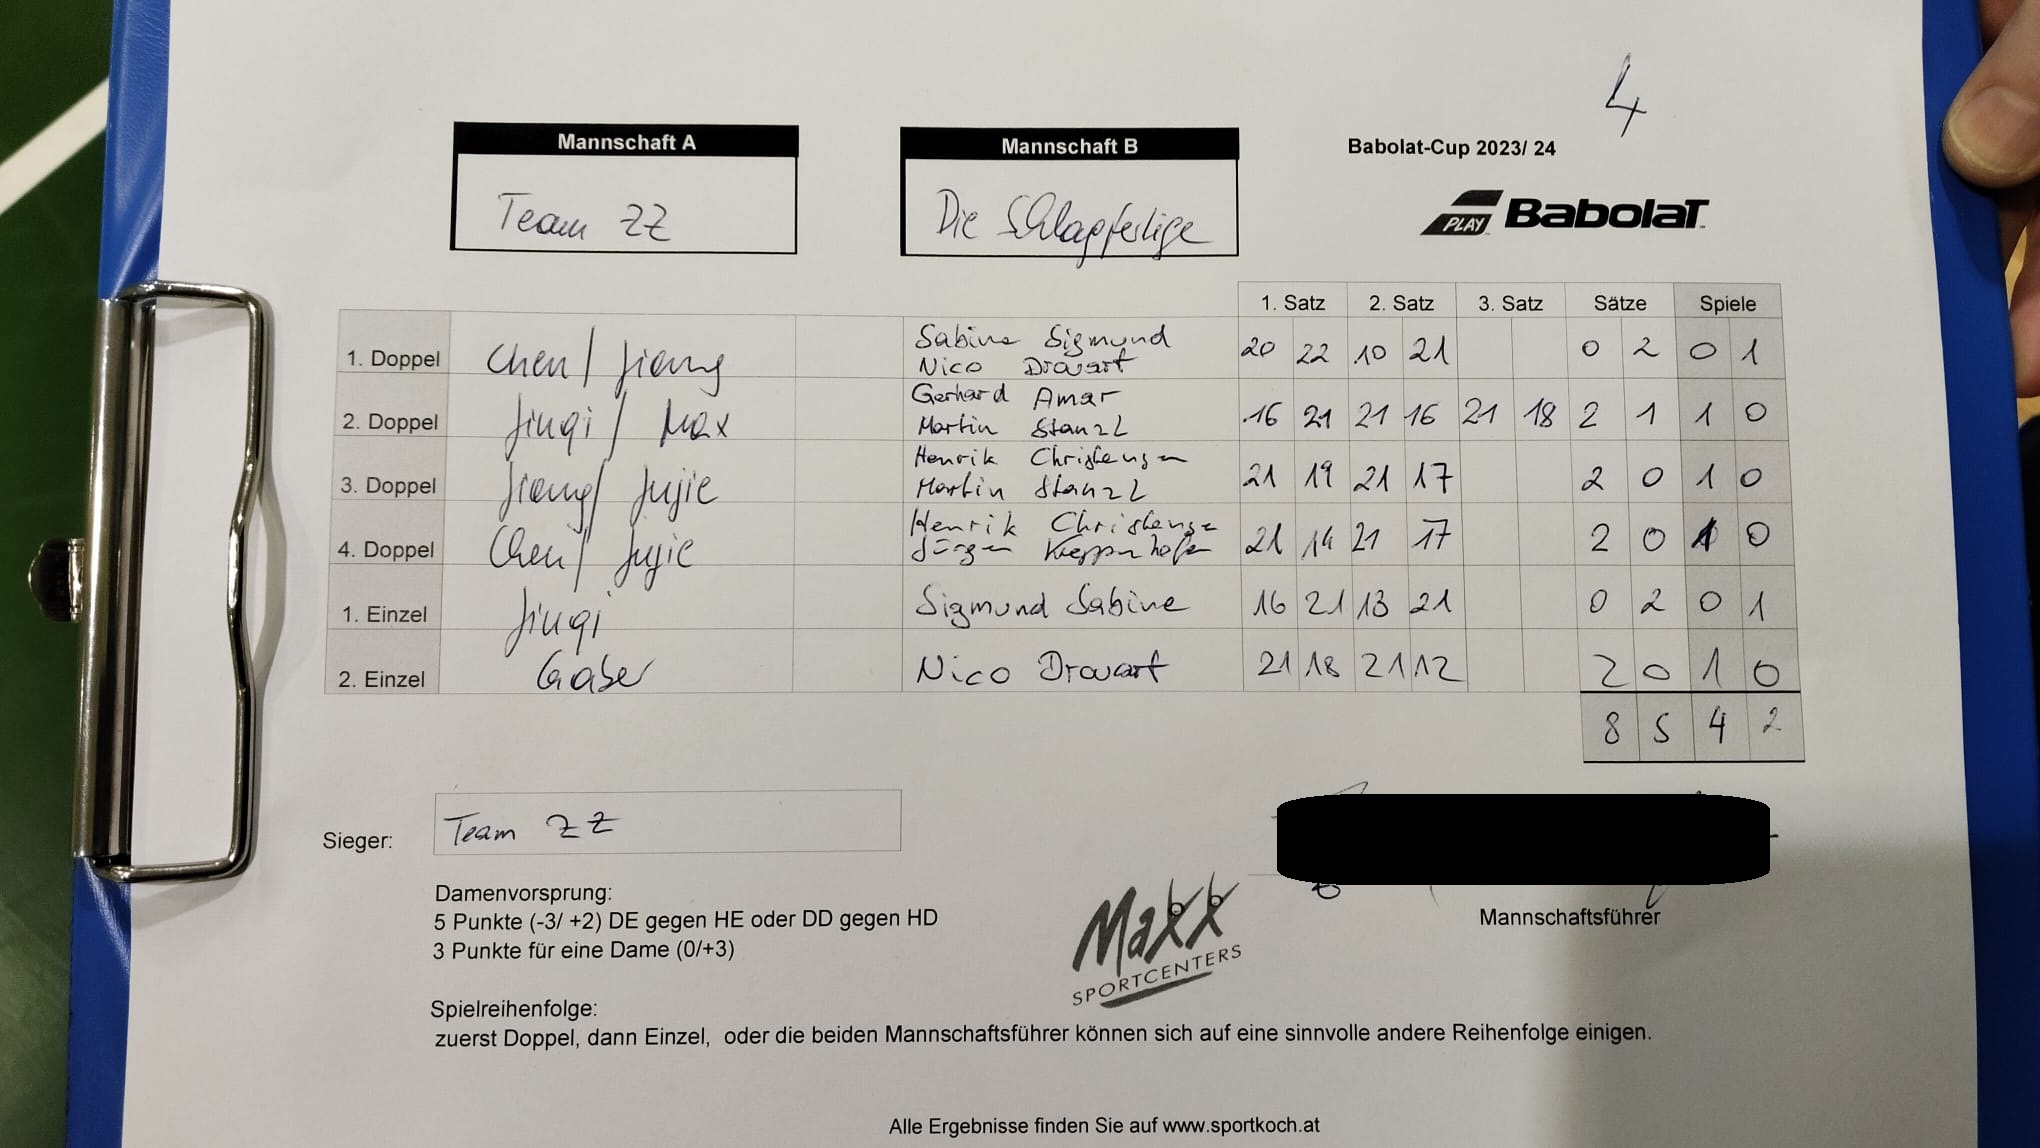 4
Mannschaft A
Team ZZ
Mannschaft B
Die Schlagfertige
Babolat-Cup 2023/ 24
PLAY BABOLAT
1. Satz 2. Satz 3. Satz Sätze Spiele
1. Doppel Chen / Jiang Sabine Sigmund 20 22 10 21 0 2 0 1
Nico Drouart
2. Doppel Jinqi / Max Gerhard Amar 16 21 21 16 21 18 2 1 1 0
Martin Stanzl
3. Doppel Jiang / Jujie Henrik Christensen 21 19 21 17 2 0 1 0
Martin Stanzl
4. Doppel Chen / Jujie Henrik Christensen 21 14 21 17 2 0 1 0
Jürgen
1. Einzel Jinqi Sigmund Sabine 16 21 13 21 0 2 0 1
2. Einzel Gaber Nico Drouart 21 18 21 12 2 0 1 0
8 5 4 2
Sieger: Team ZZ
Mannschaftsführer
Damenvorsprung:
5 Punkte (-3/ +2) DE gegen HE oder DD gegen HD
3 Punkte für eine Dame (0/+3)
Maxx
SPORTCENTERS
Spielreihenfolge:
zuerst Doppel, dann Einzel, oder die beiden Mannschaftsführer können sich auf eine sinnvolle andere Reihenfolge einigen.
Alle Ergebnisse finden Sie auf www.sportkoch.at